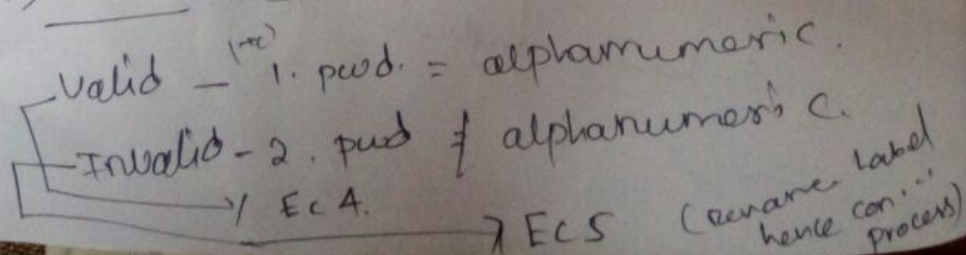 Valid - (+ve) 1. pwd. = alphanumeric.
Invalid - 2. pwd ≠ alphanumeric.
EC4.
EC5 (Rename Label
hence con...
process)